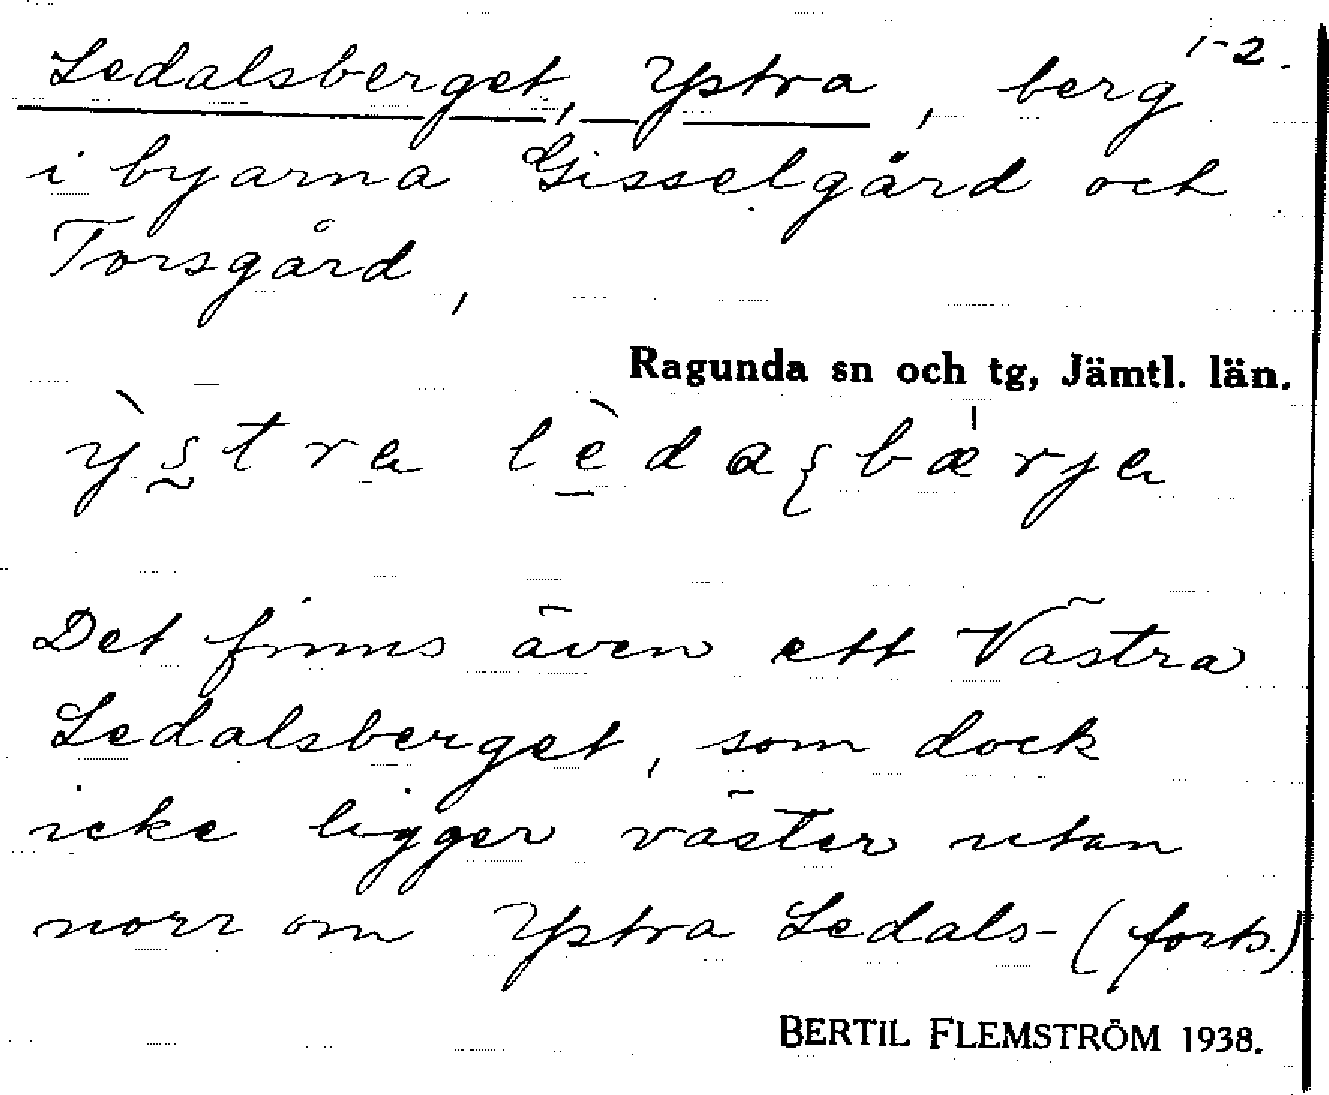 1-2.
Ledalsberget, Ystra, berg
i byarna Gisselgård och
Torsgård,
Ragunda sn och tg, Jämtl. län.
Det finns även ett Västra
Ledalsberget, som dock
icke ligger väster utan
norr om Ystra Ledals- (forts.)
BERTIL FLEMSTRÖM 1938.